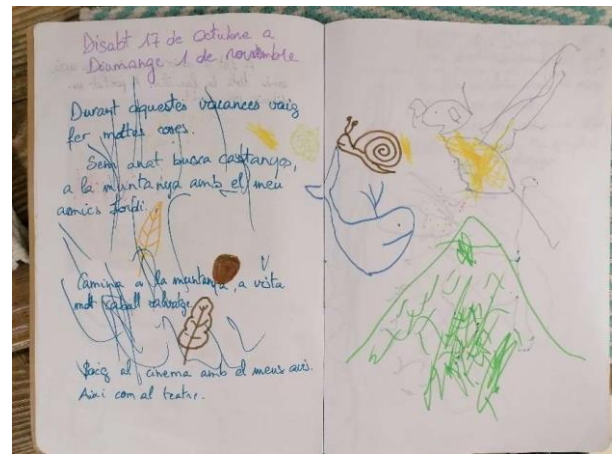 Disabt 17 de octubre a
Diumange 1 de novembre
Durant aquestes vacances vaig
fer moltes coses.
Sem anat busca castanyes,
a la muntanya amb el meu
amics Jordi.
Camina a la muntanya, a vista
molt caball salvatge
Vaig al cinema amb el meus avis.
Aixi com al teatre.